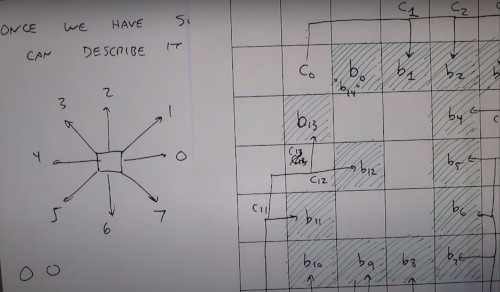 ONCE WE HAVE
CAN DESCRIBE IT
3 2 1
4 0
5 6 7
0 0
C1 C2
C0 b0 b1 b2
"b14"
b13 b4
C12 b12 b5
C11 b11 b6
b10 b9 b8 b7